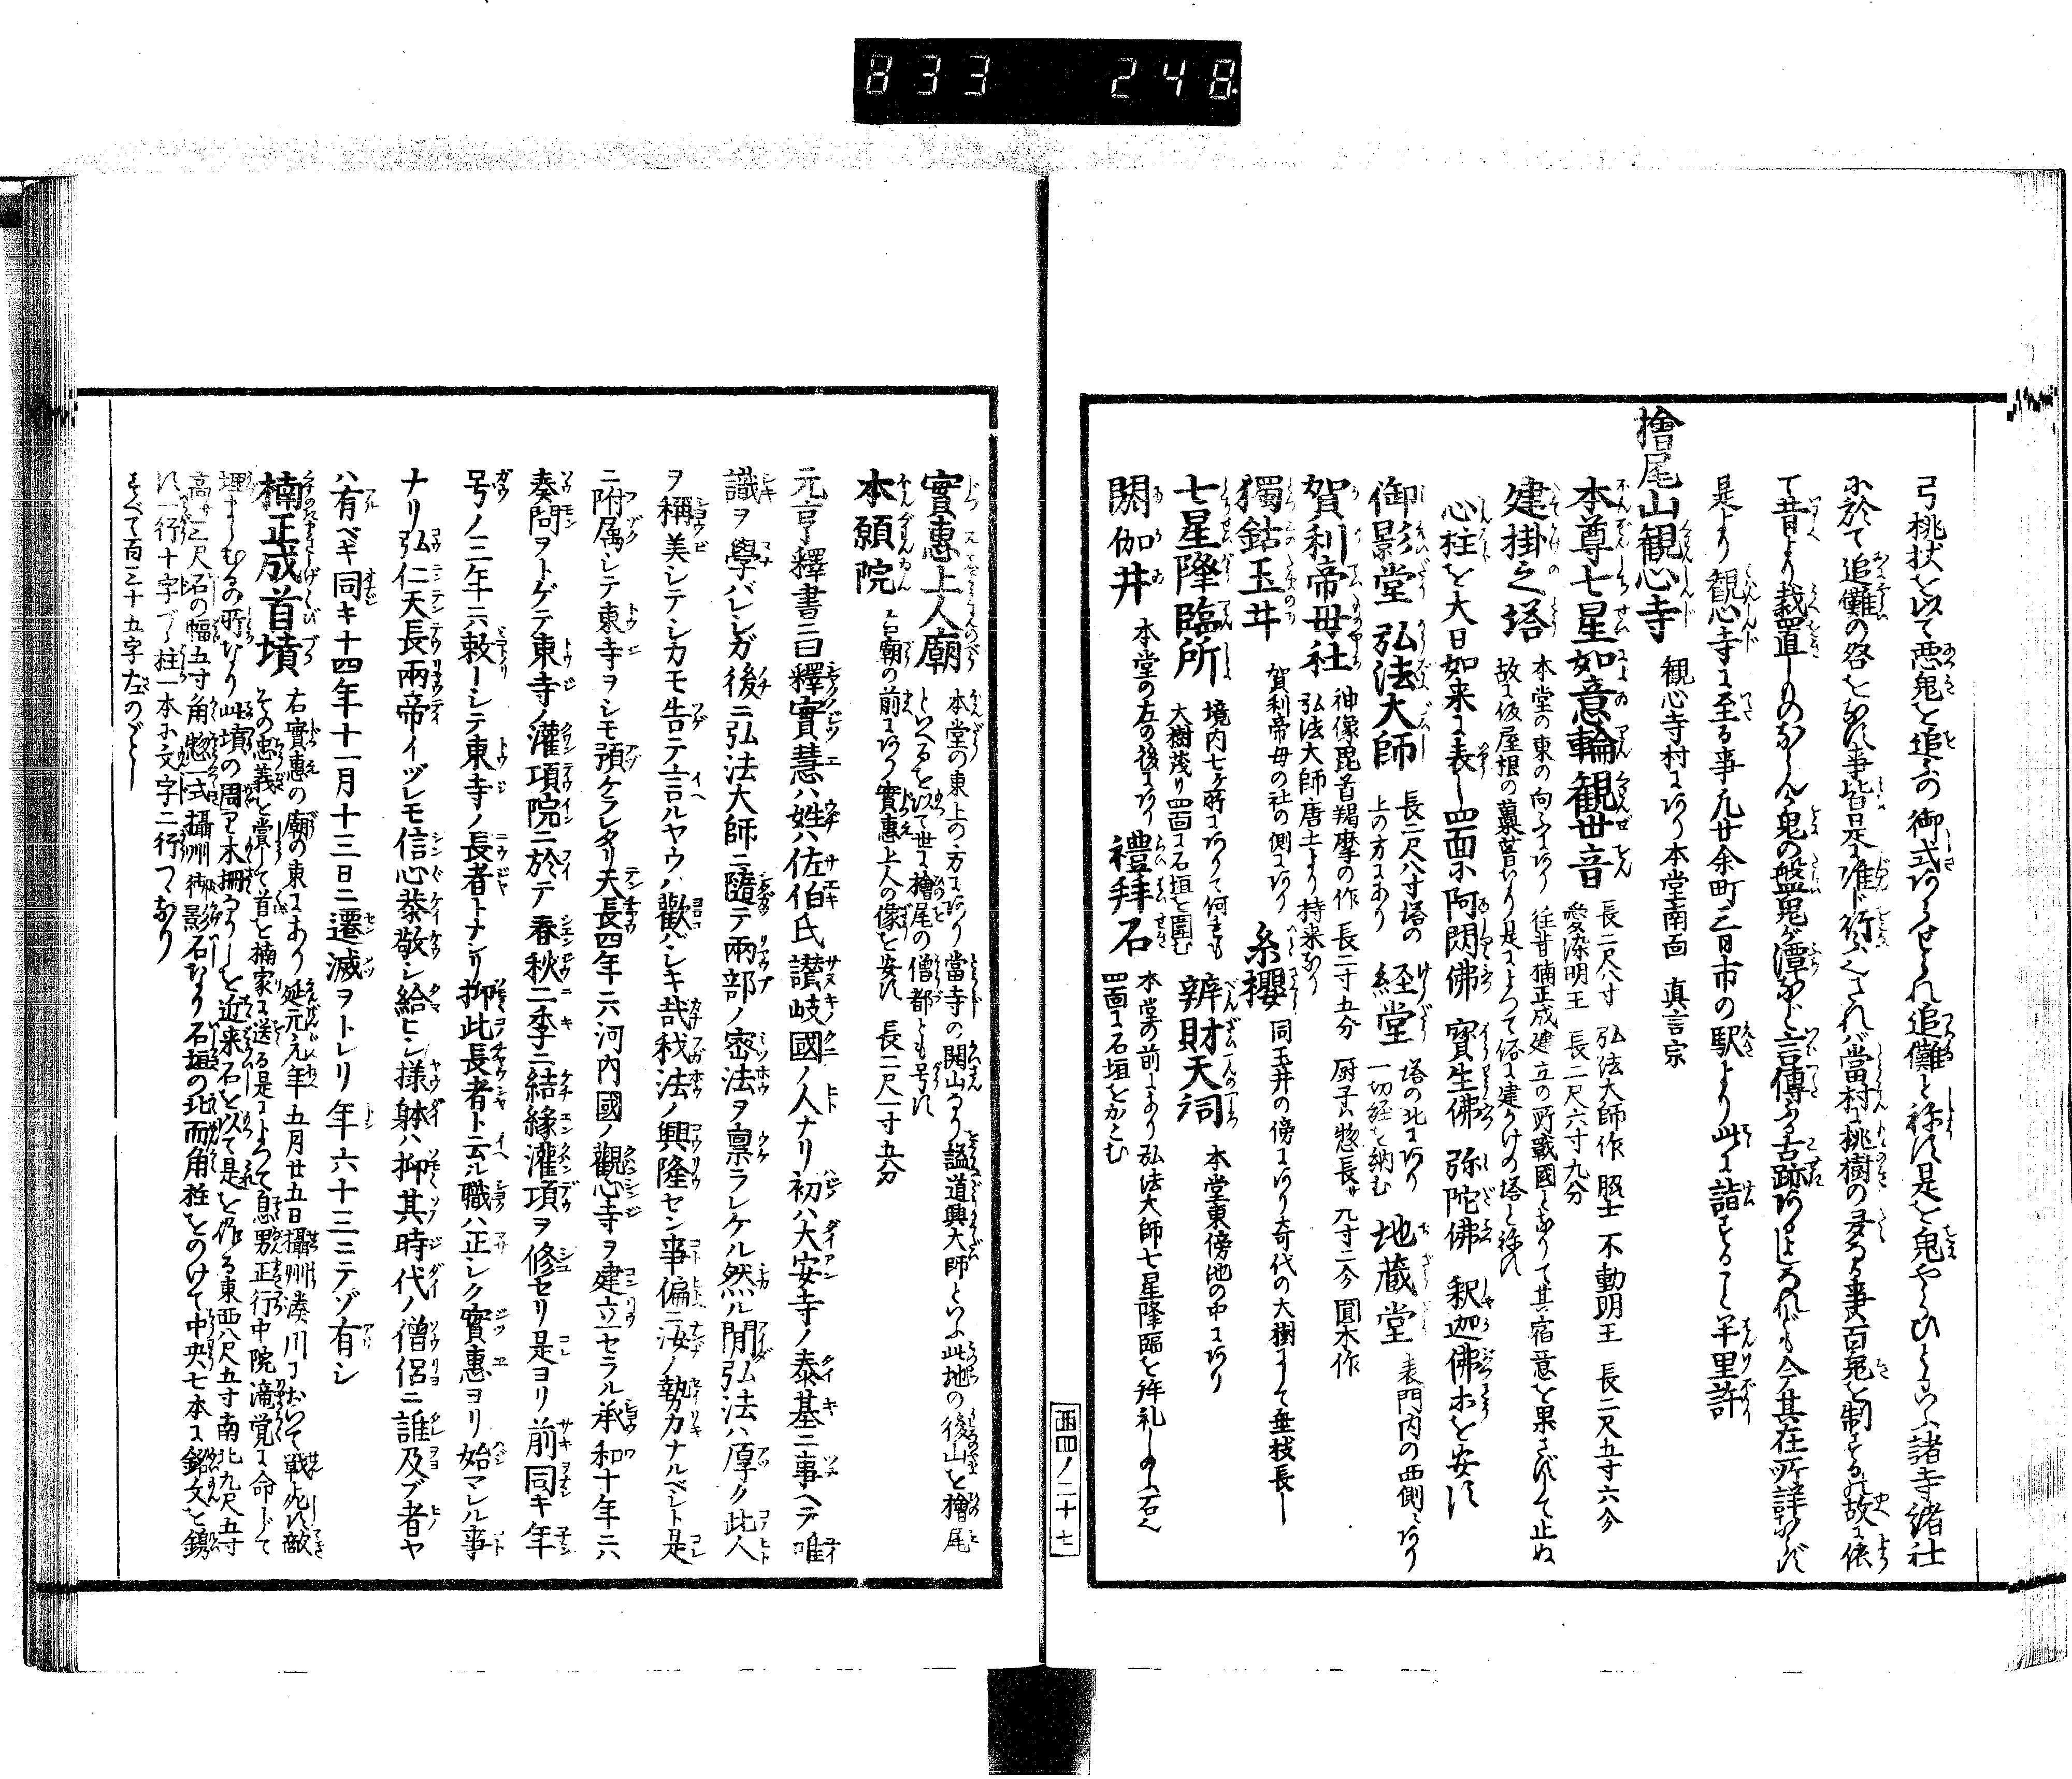 833 248
弓桃杖を以て悪鬼を追ふの御式ありけるとかれ追儺と称す是を鬼やらひといふ諸寺諸社
に於て追儺の咎をなす事皆是に准ド行ふ
て昔より裁置しのなし鬼の盤鬼ガ潭など言傳ふる古跡ありしかれども今其在所詳ならず
是より観心寺に至る事凡廿余町三日市の駅より此に詣すること半里許
檜尾山観心寺 観心寺村にあり本堂南面 真言宗
本尊七星如意輪観世音 長二尺八寸 弘法大師作 脇士 不動明王 長二尺五寸六分
愛染明王 長二尺六寸九分
建掛之塔 本堂の東の向ふにあり 往昔楠正成建立の所戦國となりて其宿意を果さずして止ぬ
故に仮屋根の藁葺なり是によつて俗に建かけの塔と称す
心柱を大日如来に表し四面に阿閦佛 寳生佛 弥陀佛 釈迦佛ホを安す
御影堂 弘法大師 長二尺八寸塔の
上の方にあり
経堂 塔の北にあり
一切経を納む
地蔵堂 表門内の西側にあり
賀利帝母社 神像毘首羯摩の作 長二寸五分 厨子惣長サ九寸二分 圓木作
弘法大師唐土より持来なり
獨鈷玉井 賀利帝母の社の側にあり 糸櫻 同玉井の傍にあり奇代の大樹にして垂枝長し
七星降臨所 境内七ヶ所にありて何れも
大樹茂り四面に石垣を圍む
辨財天祠 本堂東傍池の中にあり
閼伽井 本堂の左の後にあり 禮拜石 本堂の前にあり弘法大師七星降臨を拜礼しのふ石
四面に石垣をかこむ
西四ノ二十七
實惠上人廟 本堂の東上の方にあり當寺の開山なり謚道興大師といふ此地の後山を檜尾
といへるを以て世に檜尾の僧都とも号す
本願院 右廟の前にあり實惠上人の像を安す 長二尺一寸五分
元亨釋書ニ曰釋實慧ハ姓ハ佐伯氏讃岐國ノ人ナリ初ハ大安寺ノ泰基ニ事ヘテ唯
識ヲ學バレシガ後ニ弘法大師ニ隨テ兩部ノ密法ヲ禀ラレケル然ル間弘法ハ厚ク此人
ヲ稱美シテシカモ告テ言ルヤウハ歡バシキ哉我法ノ興隆セン事偏ニ汝ノ勢力ナルベシト是
ニ附属シテ東寺ヲシモ預ケラレタリ天長四年ニハ河内國ノ觀心寺ヲ建立セラル承和十年ニハ
奏問ヲトゲテ東寺ノ灌頂院ニ於テ春秋二季ニ結縁灌頂ヲ修セリ是ヨリ前同キ年
号ノ三年ニハ敕シテ東寺ノ長者トナシ抑此長者ト云ル職ハ正シク實惠ヨリ始マレル事
ナリ弘仁天長兩帝イヅレモ信心恭敬シ給ヒシ様躰ハ抑其時代ノ僧侶ニ誰及ブ者ヤ
ハ有ベキ同キ十四年十一月十三日ニ遷滅ヲトレリ年六十三ニテゾ有シ
楠正成首墳 右實惠の廟の東にあり 延元元年五月廿五日攝州湊川において戰死す敵
その忠義を賞して首を楠家に送る是によつて息男正行中院滝覚に命じて
埋むるの所なり此墳の周リ木柵なりしを近来石を以て是を作る東西八尺五寸南北九尺五寸
高サ三尺石の幅五寸角惣一式攝州御影石なり石垣の北面角柱をのけて中央七本に銘文を鐫
す一行十字ヅヽ柱一本に文字二行ヅヽなり
すべて百三十五字左のごとし